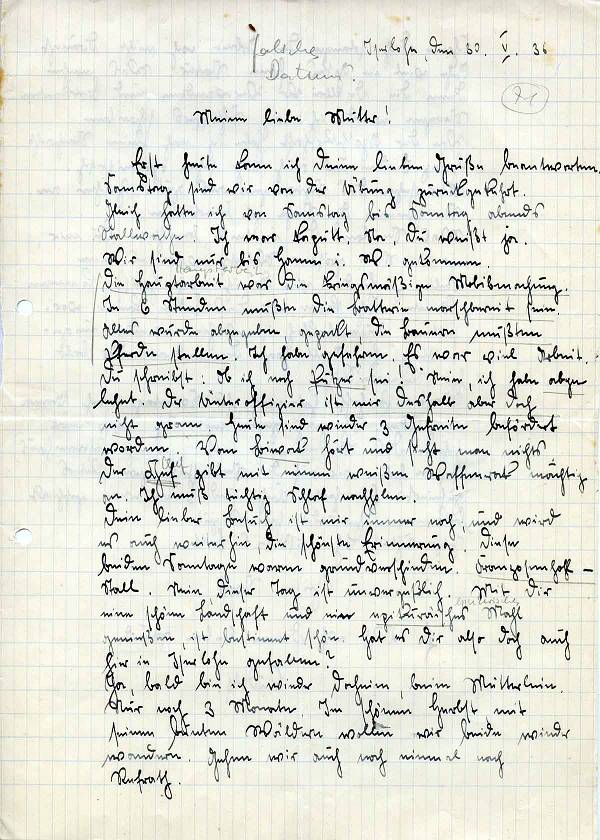 falsches
Datum?
Iserlohn, den 30. V. 36
Meine liebe Mutter!
Erst heute kann ich Deine lieben Grüße beantworten.
Samstag sind wir von der Übung zurückgekehrt.
Gleich hatte ich von Samstag bis Sonntag abends
Stallwache. Ich war kaputt. Na, Du weißt ja.
Wir sind nur bis Hamm i. W. gekommen.
Hauptarbeit
Die Hauptarbeit war die kriegsmäßige Mobilmachung.
In 6 Stunden mußte die Batterie marschbereit sein.
Alles wurde abgegeben, gepackt, die Bauern mußten
Pferde stellen. Ich habe gesehen, Es war viel Arbeit.
Du schreibst: Ob ich noch sei? Nein, ich habe abge-
lehnt. Der Unteroffizier ist mir deshalb aber doch
nicht gram. Heute sind wieder 3 Gefreite befördert
worden. Vom hört und sieht man nichts.
Der Chef gibt mit einem weißen Waffenrock mächtig
an. Ich muß tüchtig Schlaf nachholen.
Dein lieber Besuch ist mir immer noch, und wird
es auch weiterhin, die schönste Erinnerung. Diese
beiden Sonntage waren grundverschieden. Franzosenhoff –
Stall. Nein dieser Tag ist unvergeßlich. Mit Dir
eine schöne Landschaft und ein epikuräisches Mahl
genießen, ist bestimmt schön. Hat es Dir also doch auch
hier in Iserlohn gefallen?
Ja, bald bin ich wieder daheim, beim Mütterlein.
Nur noch 3 Monate. Im schönen Herbst mit
seinen bunten Wäldern wollen wir beide wieder
wandern. Gehen wir auch noch einmal nach
Refrath.